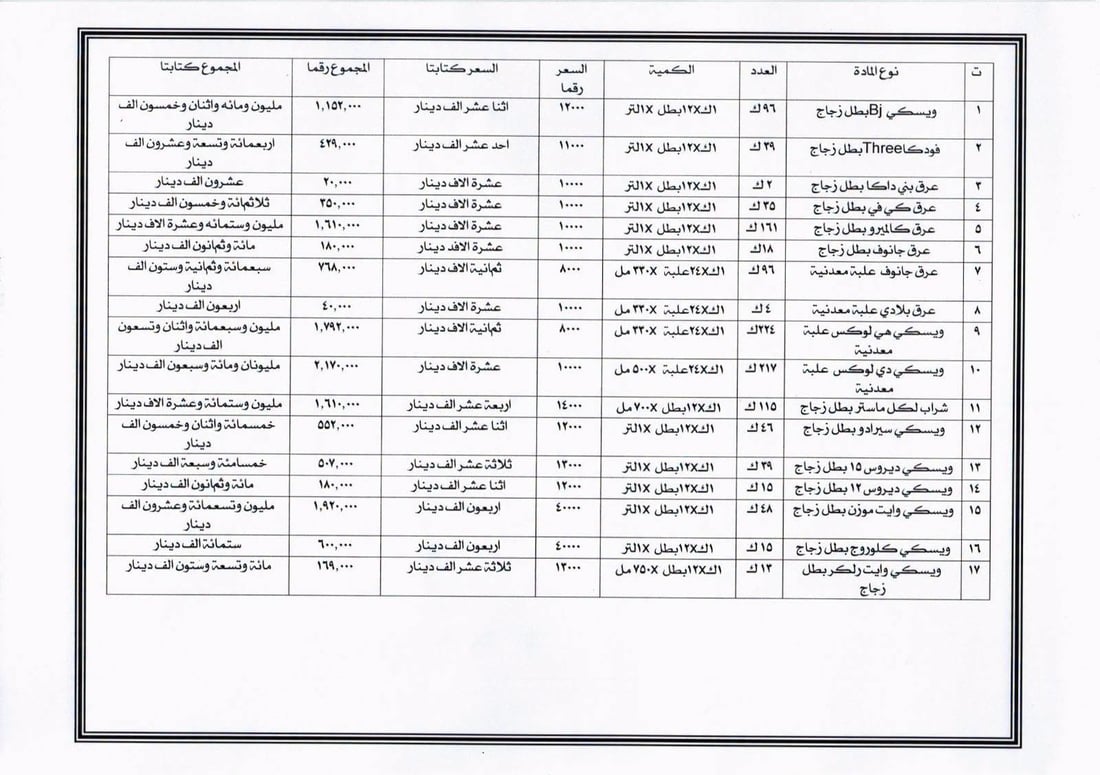 ت نوع المادة العدد الكمية السعر رقما السعر كتابتا المجموع رقما المجموع كتابتا
١ ويسكي Bj بطل زجاج ٩٦ك ١ك١٢X بطل ١X لتر ١٢٠٠٠ اثنا عشر الف دينار ١,١٥٢,٠٠٠ مليون ومانه واثنان وخمسون الف دينار
٢ فودكا Three بطل زجاج ٣٩ك ١ك١٢X بطل ١X لتر ١١٠٠٠ احد عشر الف دينار ٤٢٩,٠٠٠ اربعمائة وتسعة وعشرون الف دينار
٣ عرق بني داكا بطل زجاج ٢ك ١ك١٢X بطل ١X لتر ١٠٠٠٠ عشرة الاف دينار ٢٠,٠٠٠ عشرون الف دينار
٤ عرق كي في بطل زجاج ٣٥ك ١ك١٢X بطل ١X لتر ١٠٠٠٠ عشرة الاف دينار ٣٥٠,٠٠٠ ثلاثمائة وخمسون الف دينار
٥ عرق كالميرو بطل زجاج ١٦١ك ١ك١٢X بطل ١X لتر ١٠٠٠٠ عشرة الاف دينار ١,٦١٠,٠٠٠ مليون وستمائه وعشرة الاف دينار
٦ عرق جانوف بطل زجاج ١٨ك ١ك١٢X بطل ١X لتر ١٠٠٠٠ عشرة الافد دينار ١٨٠,٠٠٠ مائة وثمانون الف دينار
٧ عرق جانوف علبة معدنية ٩٦ك ١ك٢٤X علبة ٣٣٠X مل ٨٠٠٠ ثمانية الاف دينار ٧٦٨,٠٠٠ سبعمائة وثمانية وستون الف دينار
٨ عرق بلادي علبة معدنية ٤ك ١ك٢٤X علبة ٣٣٠X مل ١٠٠٠٠ عشرة الاف دينار ٤٠,٠٠٠ اربعون الف دينار
٩ ويسكي هي لوكس علبة معدنية ٢٢٤ك ١ك٢٤X علبة ٣٣٠X مل ٨٠٠٠ ثمانية الاف دينار ١,٧٩٢,٠٠٠ مليون وسبعمائة واثنان وتسعون الف دينار
١٠ ويسكي دي لوكس علبة معدنية ٢١٧ك ١ك٢٤X علبة ٥٠٠X مل ١٠٠٠٠ عشرة الاف دينار ٢,١٧٠,٠٠٠ مليونان ومائة وسبعون الف دينار
١١ شراب لكل ماستر بطل زجاج ١١٥ك ١ك١٢X بطل ٧٠٠X مل ١٤٠٠٠ اربعة عشر الف دينار ١,٦١٠,٠٠٠ مليون وستمائة وعشرة الاف دينار
١٢ ويسكي سيرادو بطل زجاج ٤٦ك ١ك١٢X بطل ١X لتر ١٢٠٠٠ اثنا عشر الف دينار ٥٥٢,٠٠٠ خمسمائة واثنان وخمسون الف دينار
١٣ ويسكي ديروس ١٥ بطل زجاج ٣٩ك ١ك١٢X بطل ١X لتر ١٣٠٠٠ ثلاثة عشر الف دينار ٥٠٧,٠٠٠ خمسامئة وسبعة الف دينار
١٤ ويسكي ديروس ١٢ بطل زجاج ١٥ك ١ك١٢X بطل ١X لتر ١٢٠٠٠ اثنا عشر الف دينار ١٨٠,٠٠٠ مائة وثمانون الف دينار
١٥ ويسكي وايت موزن بطل زجاج ٤٨ك ١ك١٢X بطل ١X لتر ٤٠٠٠٠ اربعون الف دينار ١,٩٢٠,٠٠٠ مليون وتسعمائة وعشرون الف دينار
١٦ ويسكي كلوروج بطل زجاج ١٥ك ١ك١٢X بطل ١X لتر ٤٠٠٠٠ اربعون الف دينار ٦٠٠,٠٠٠ ستمائة الف دينار
١٧ ويسكي وايت رلكر بطل زجاج ١٣ك ١ك١٢X بطل ٧٥٠X مل ١٣٠٠٠ ثلاثة عشر الف دينار ١٦٩,٠٠٠ مائة وتسعة وستون الف دينار